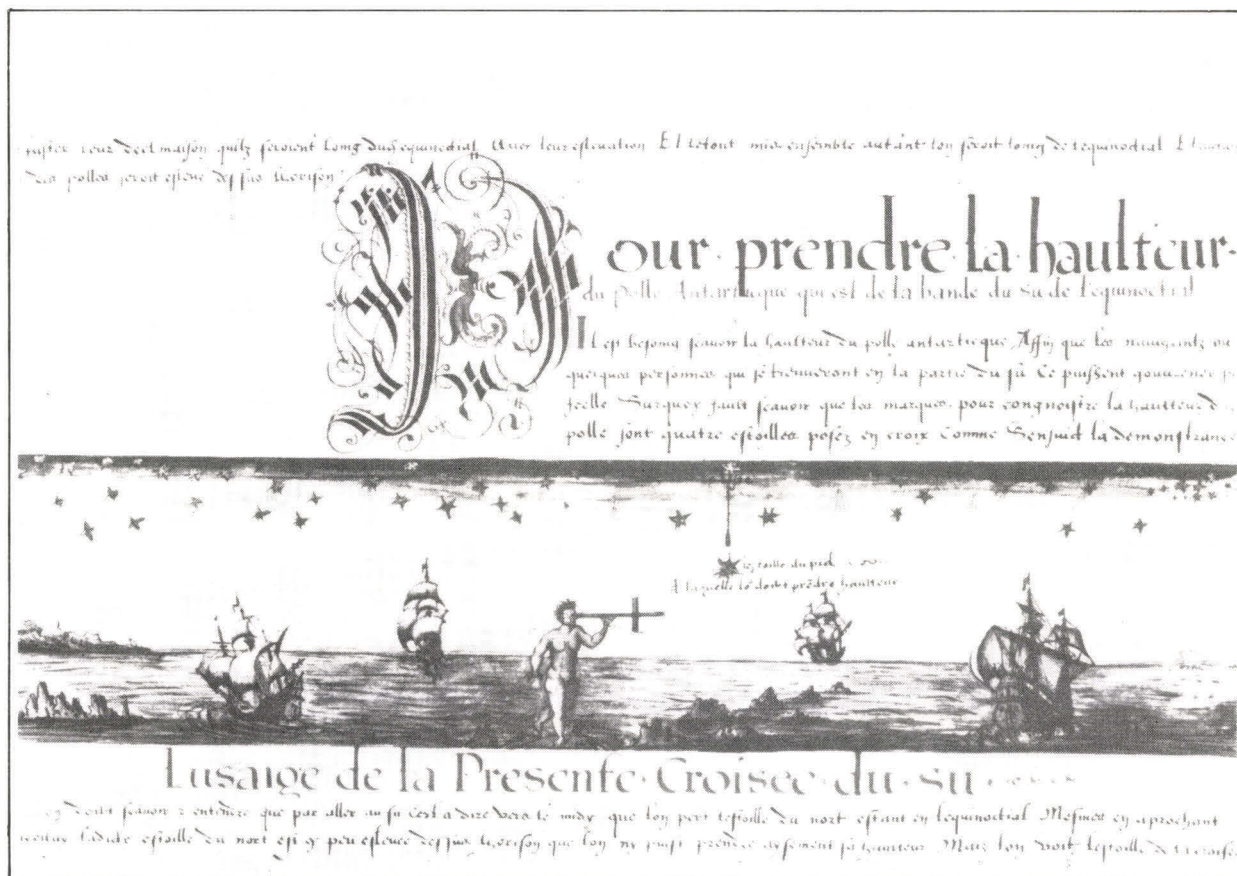 leur declinaison quilz seroient loing du equinoctial Avec leur eslevation Et letout mis ensemble autant lon seroit loing de lequinoctial Et
des polles seroit esleve dessus lorison
Pour · prendre · la · haulteur ·
du Polle Antartique qui est de la bande du Su de l'equinoctial
Il est besoing scavoir la haulteur du polle antartique Affin que les navigantz ou
quelques personnes qui se trouveront en la partie du su Ce puissent gouverner
Icelle Surquoy fault scavoir que les marques pour congnoistre la haulteur
polle sont quatre estoilles posez en croix Comme Sensuict la demonstrance
estoille du pied
A laquelle se doibt prēdre haulteur
Lusaige de la Presente · Croisee · du · su ·
doibt scavoir & entendre que par aller au su Cest a dire vers le midy que lon pert lestoille du nort estant en lequinoctial Mesmes en aprochant
ladicte estoille du nort est sy peu eslevee dessus lorison que lon ny puist prendre aysement sa haulteur Mais lon voit lestoille de la croisee